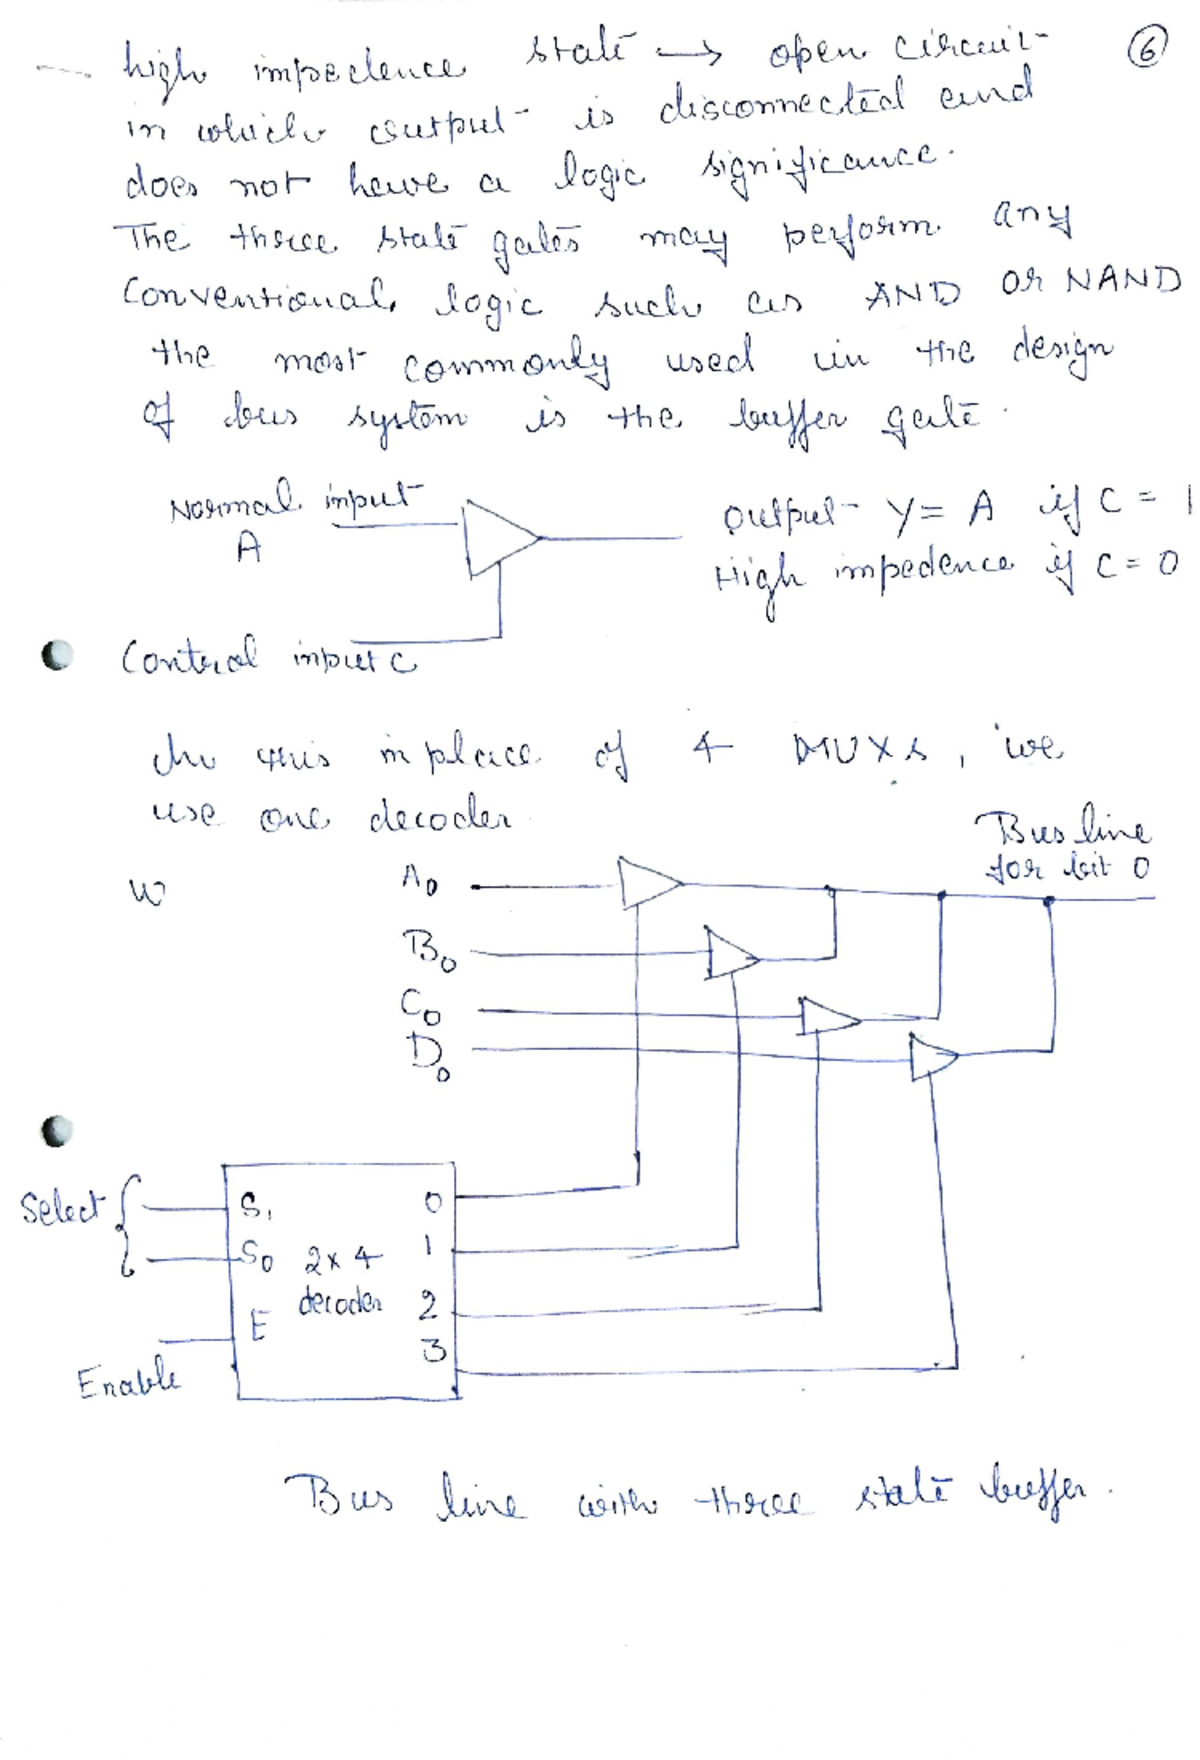 high impedence state → open circuit
⑥
in which output is disconnected and
does not have a logic significance.
The three state gates may perform any
conventional logic such as AND or NAND
the most commonly used in the design
of bus system is the buffer gate.
Normal input
A
Output Y = A if C = 1
High impedence if C = 0
Control input C
In this in place of 4 MUXs, we
use one decoder
Bus line
for bit 0
w
A0
B0
C0
D0
Select
S1
S0
E
2x4
decoder
0
1
2
3
Enable
Bus line with three state buffer.